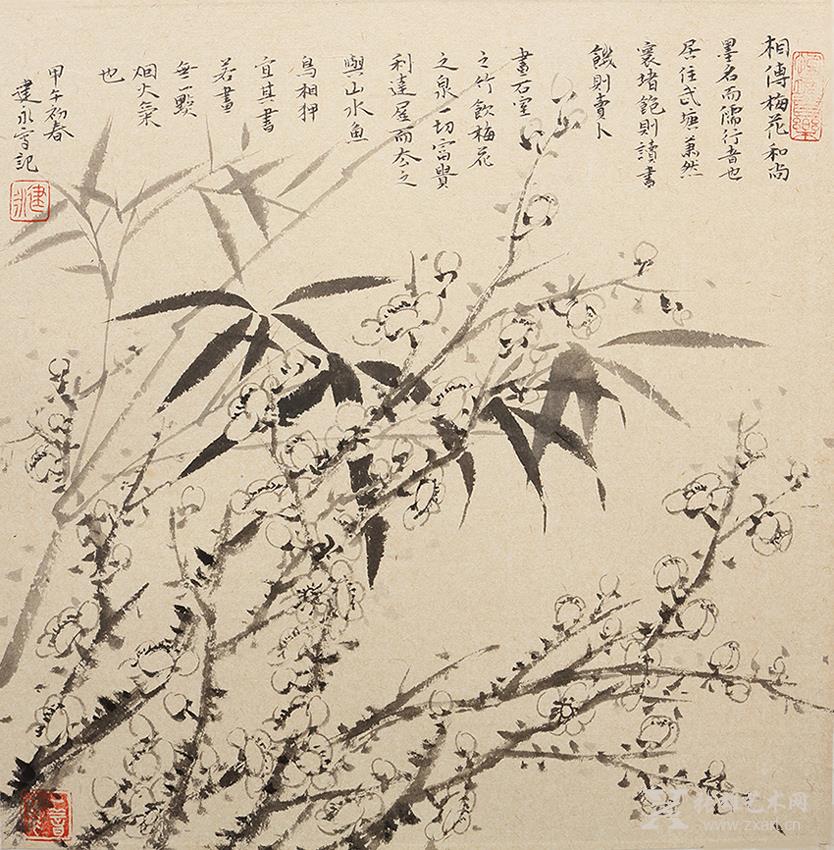 相傳梅花和尚
墨名而儒行者也
居住武塘蕭然
寰堵飽則讀書
饑則賣卜
畫石室
之竹飲梅花
之泉一切富貴
利達屏而去之
與山水魚
鳥相狎
宜其書
若畫
無一點
烟火氣
也
甲午初春
建永記
www.zxart.cn